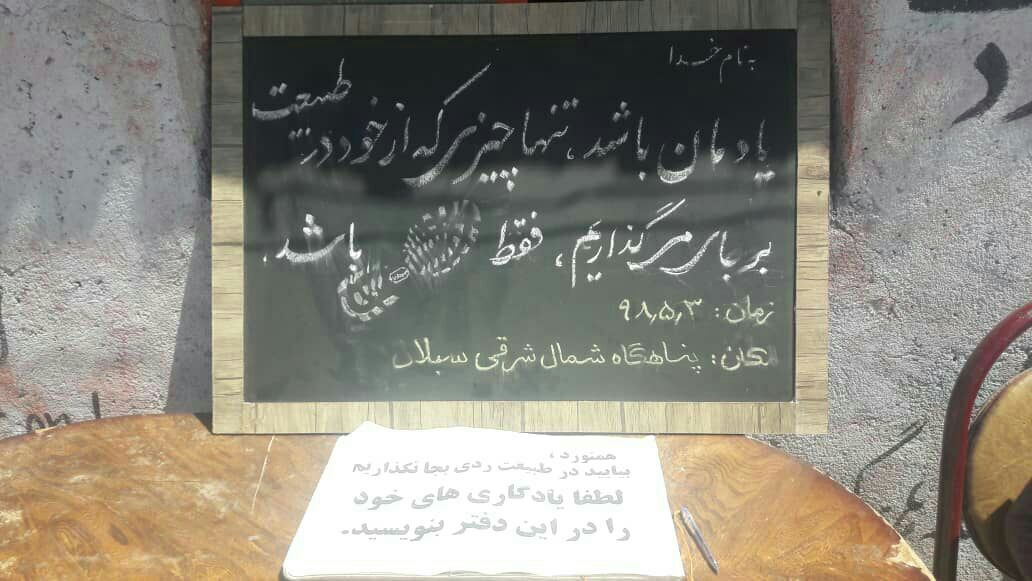 به نام خدا
یادمان باشد، تنها چیزی که از خود در طبیعت
بر جای می گذاریم، فقط باشد.
زمان: ۹۸٫۵٫۳
مکان: پناهگاه شمال شرقی سبلان
همنورد،
بیایید در طبیعت ردی بجا نگذاریم
لطفا یادگاری های خود
را در این دفتر بنویسید.